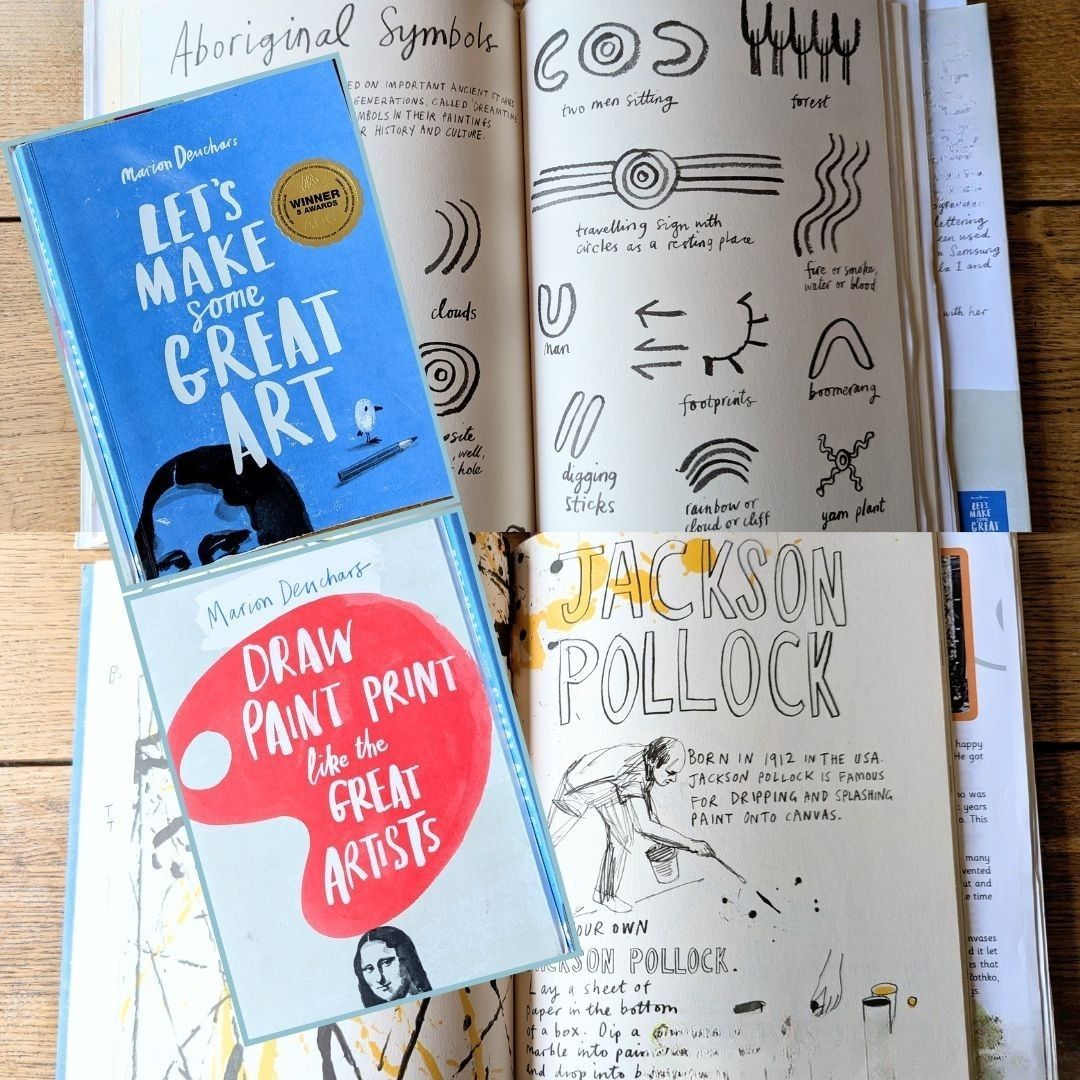 Aboriginal Symbols
ED ON IMPORTANT ANCIENT STORIES
GENERATIONS, CALLED 'DREAMTIME
MBOLS IN THEIR PAINTINGS
R HISTORY AND CULTURE.
clouds
well,
hole
two men sitting
forest
travelling sign with
circles as a resting place
fire or smoke,
water or blood
man
footprints
boomerang
digging
sticks
rainbow or
cloud or cliff
yam plant
lettering
een used
n Samsung
la I and
with her
LET'S
MAKE
GREAT
Marion Deuchars
LET'S
MAKE
some
GREAT
ART
WINNER
5 AWARDS
Marion Deuchars
DRAW
PAINT PRINT
like the
GREAT
ARTISTS
JACKSON
POLLOCK
BORN IN 1912 IN THE USA.
JACKSON POLLOCK IS FAMOUS
FOR DRIPPING AND SPLASHING
PAINT ONTO CANVAS.
OUR OWN
JACKSON POLLOCK.
Lay a sheet of
paper in the bottom
of a box. Dip a
marble into pain
and drop into b
happy
He got
ho was
years
o. This
many
vented
ut and
e time
nvases
d it let
es that
Rothko,
gs.